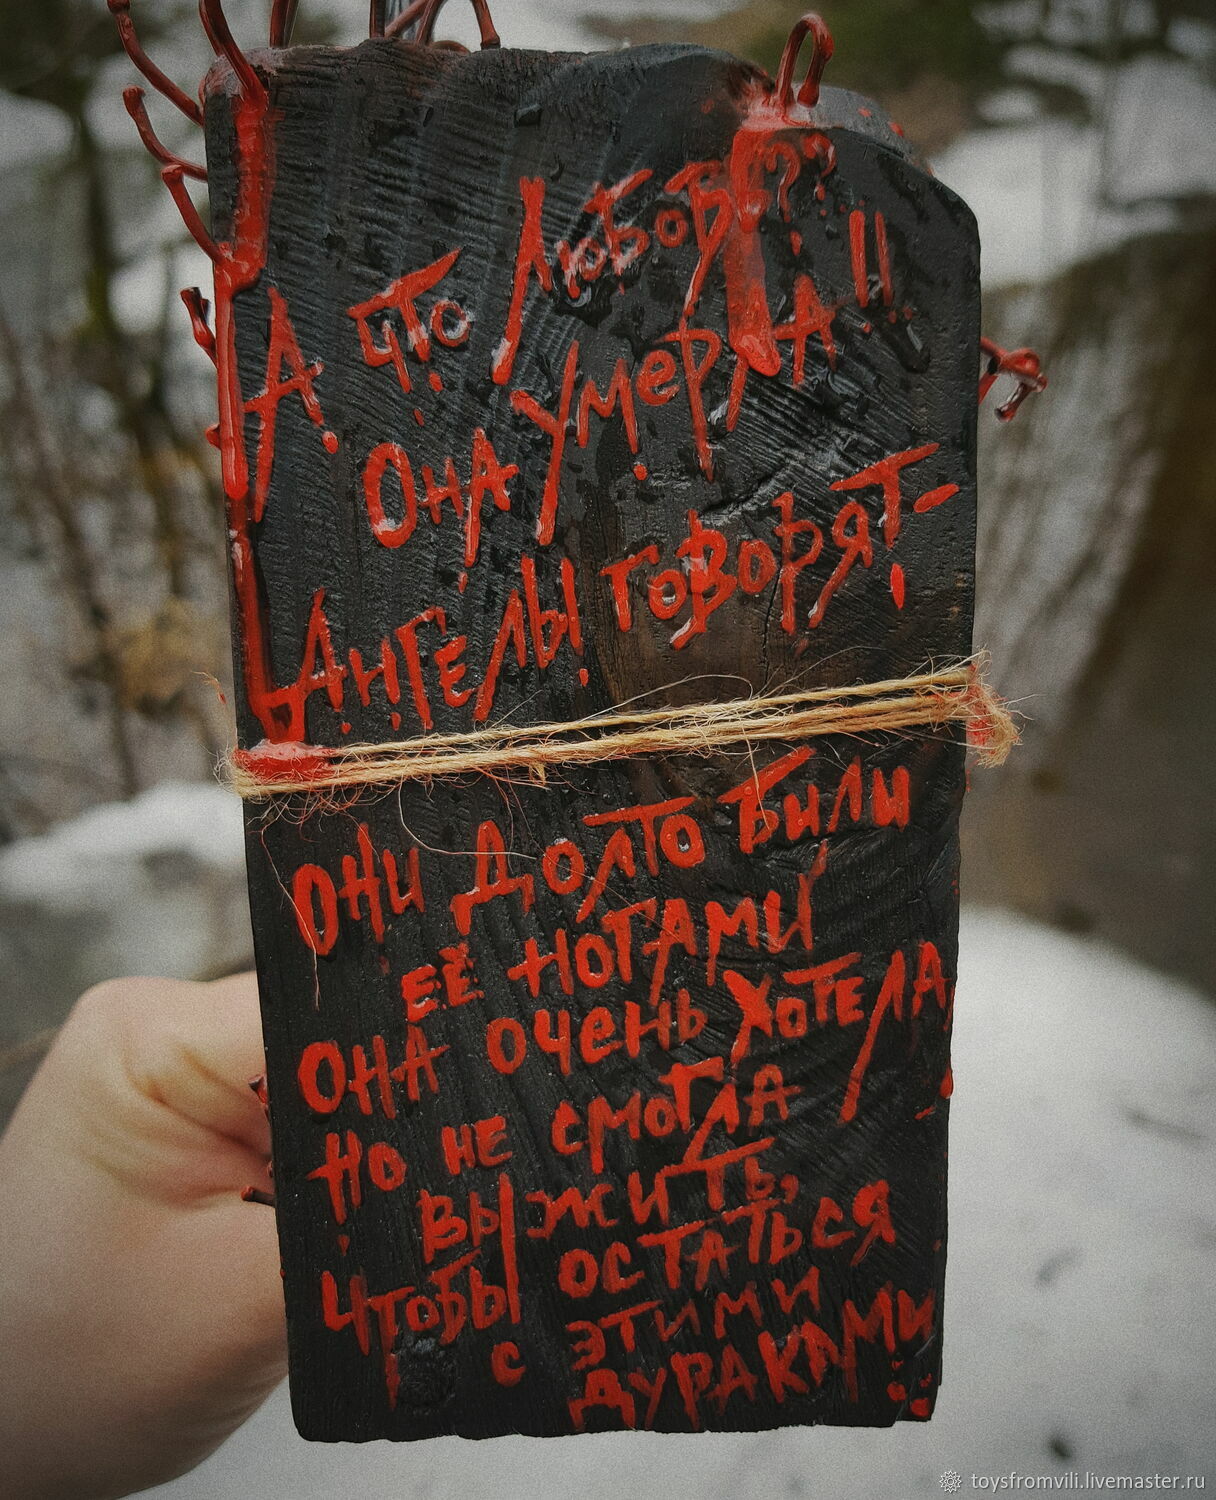 А что Любовь??
Она умерла!!
Ангелы говорят-
они долго били
её ногами
она очень хотела,
но не смогла
выжить,
чтобы остаться
с этими
дураками
toysfromvili.livemaster.ru